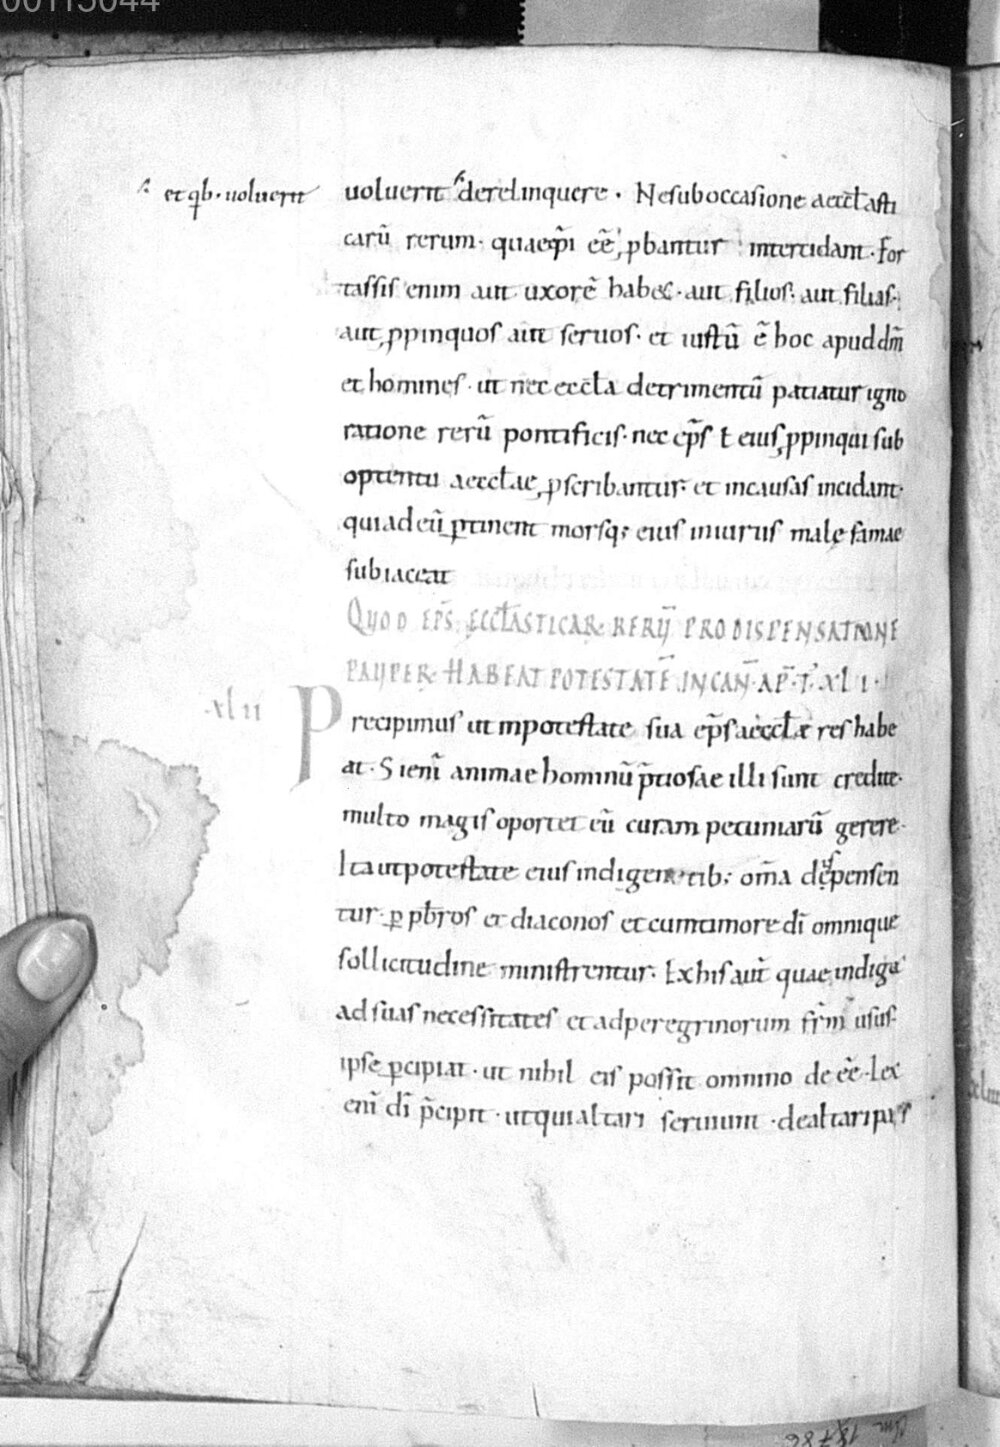 00115044
et qb · uoluerit
uoluerit derelinquere · Ne sub occasione aeccl̄asti
carū rerum · quae ep̄i eē pbantur intercidant · For
tassis enim aut uxorē habet · aut filios · aut filias ·
aut ppinquos aut seruos · et iustū ē hoc apud dm̄
et homines · ut nec eccl̄a detrimentū patiatur igno
ratione rerū pontificis · nec ep̄s ł eius ppinqui sub
optentu aeccl̄ae pscribantur · et in causas incidant ·
qui ad eū ptinent morsq; eius iniuriis malę famae
subiaceat
QUOD EP̄S ECCL̄ASTICAR RERŪ PRO DISPENSATIONE
PAUPER HABEAT POTESTATĒ IN CAN̄ · AP̄ · T · XLI ·
xlii
Precipimus ut in potestate sua ep̄s aeccl̄ae res habe
at · Si enī animae hominū p̄tiosae illi sunt credite ·
multo magis oportet eū curam pecuniarū gerere ·
Ita ut potestate eius indigentib; om̄a dispensen
tur p pb̄ros et diaconos et cum timore dī omnique
sollicitudine ministrentur · Ex his aut̄ quae indiga
ad suas necessitates et ad peregrinorum fr̄m usus ·
ipse pcipiat · ut nihil eis possit omnino de eē · Lex
enī dī p̄cipit · ut qui altari seruiunt · de altari pas